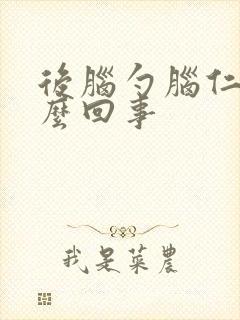 後腦勺腦仁
麼回事
我是菜農